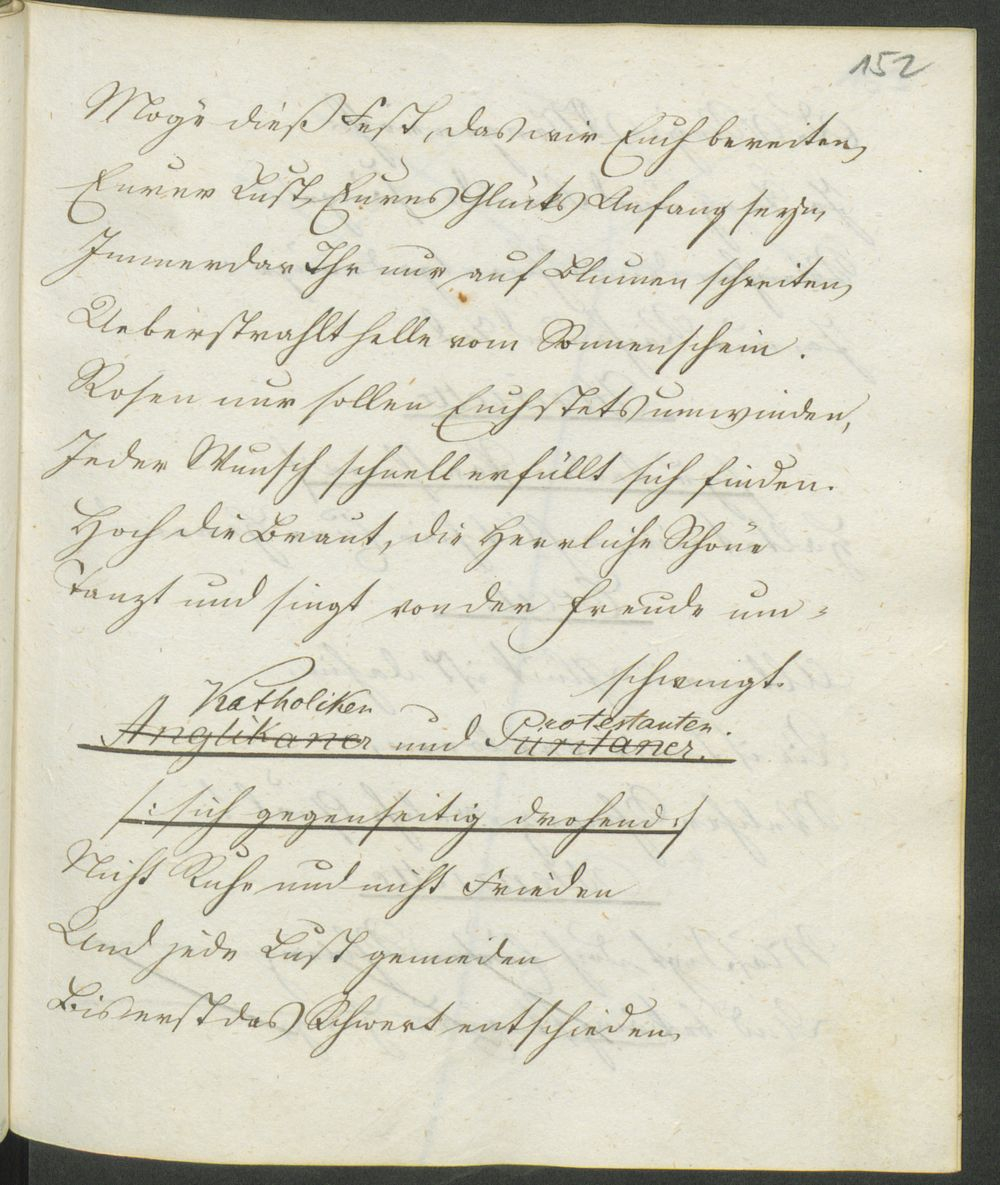 152
Möge dieß Fest, das wir Euch bereiten,
Eurer Lust, Eures Glücks Anfang seyn,
Immerdar Ihr nur auf Blumen schreiten,
Ueberstrahlt helle vom Sonnenschein.
Rosen nur sollen Euch stets umwinden,
Jeder Wunsch schnell erfüllt sich finden.
Hoch die Braut, die Herrliche Schöne
Tanzt und singt von der Freude um=
schwingt.
Katholiken Protestanten.
Anglikaner und Puritaner.
/: sich gegenseitig drohend :/
Nicht Ruhe und nicht Frieden
Und jede Lust gemieden
Bis erst das Schwert entschieden,